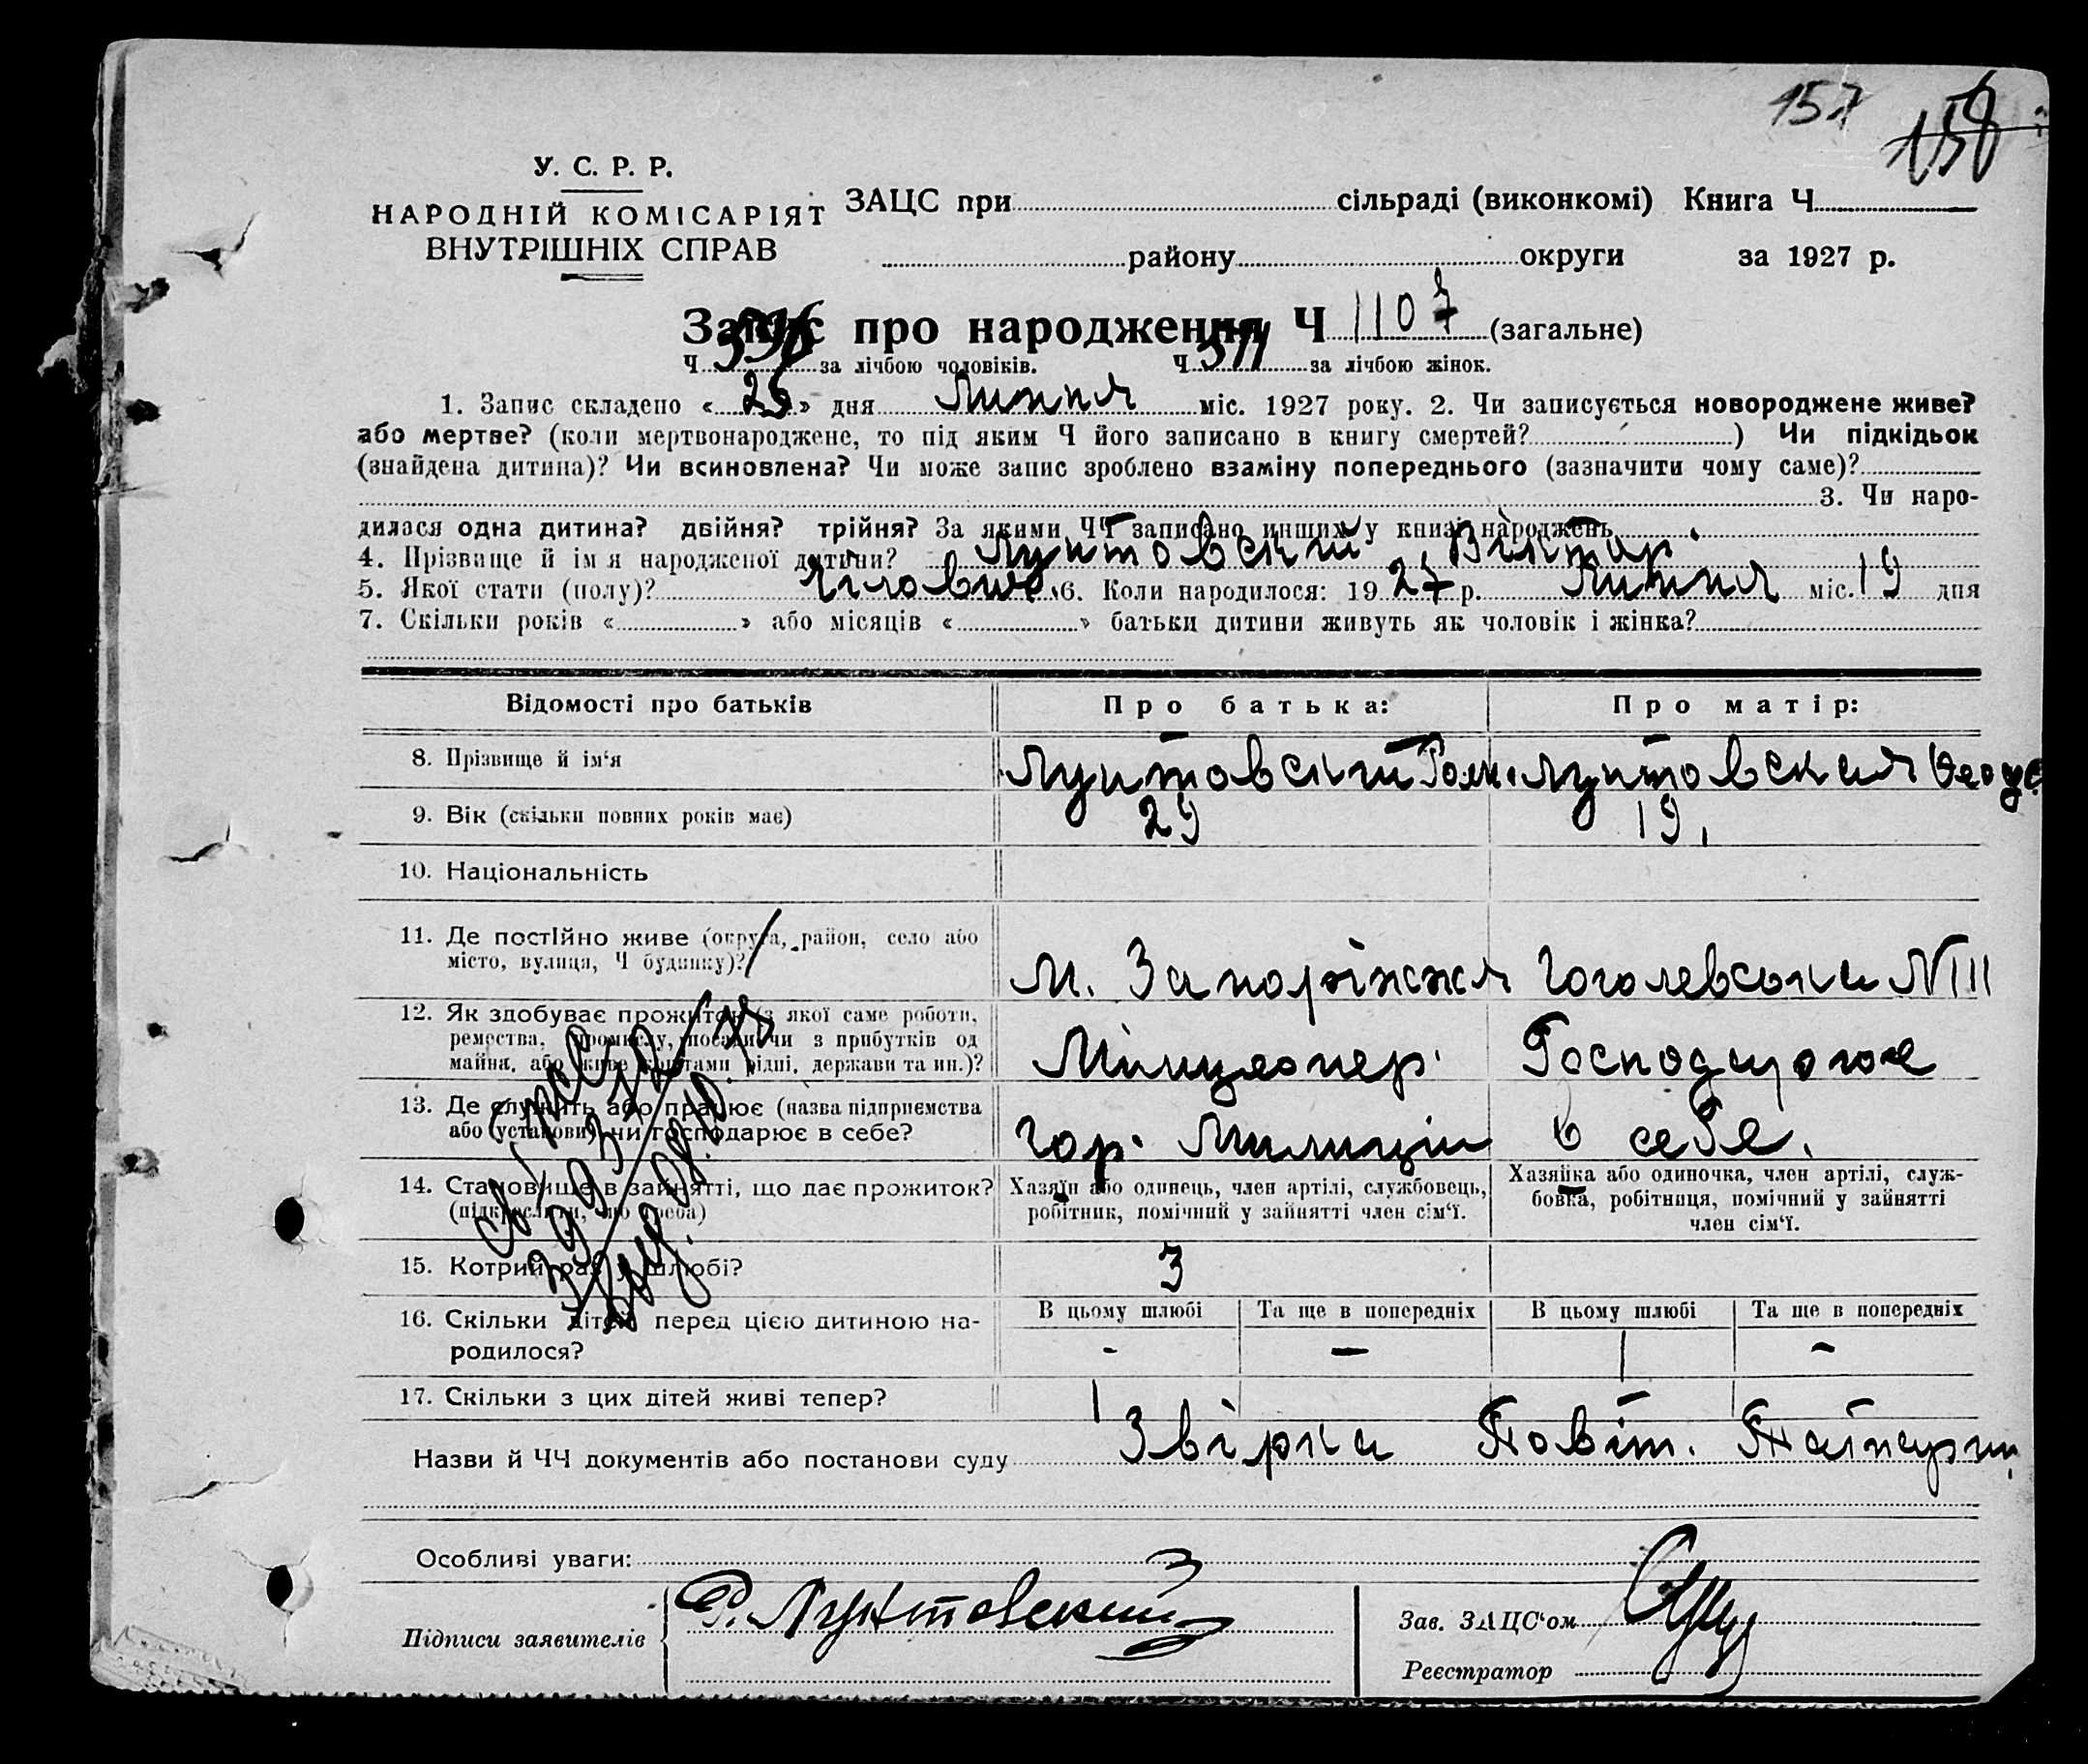 157
158
У. С. Р. Р.
НАРОДНІЙ КОМІСАРІЯТ
ВНУТРІШНІХ СПРАВ
ЗАЦС при сільраді (виконкомі) Книга Ч
району округи за 1927 р.
Запис про народження Ч 1107 (загальне)
Ч 596 за лічбою чоловіків. Ч 511 за лічбою жінок.
1. Запис складено « 25 » дня Липня міс. 1927 року. 2. Чи записується новороджене живе?
або мертве? (коли мертвонароджене, то під яким Ч його записано в книгу смертей? ) Чи підкідьок
(знайдена дитина)? Чи всиновлена? Чи може запис зроблено взаміну попереднього (зазначити чому саме)?
3. Чи наро-
дилася одна дитина? двійня? трійня? За якими ЧЧ записано инших у книзі народжень
4. Прізвище й ім я народженої дитини? Лунтовский Віктор
5. Якої стати (полу)? Чіловиче 6. Коли народилося: 1927 р. Липня міс. 19 дня
7. Скільки років « » або місяців « » батьки дитини живуть як чоловік і жінка?
Відомості про батьків Про батька: Про матір:
8. Прізвище й ім‘я Лунтовский Ром. Лунтовская Феодо
9. Вік (скільки повних років має) 29 19.
10. Національність
11. Де постійно живе (округа, район, село або
місто, вулиця, Ч будинку)? м. Запоріжжя Гоголевська №111
12. Як здобуває прожиток (з якої саме роботи,
ремества, промислу, посади чи з прибутків од
майна, або живе коштами рідні, держави та ин.)? Міліціонер. Господарює
13. Де служить або працює (назва підприємства
або установи) чи господарює в себе? Гор. Милиціи в себе.
14. Становище в зайнятті, що дає прожиток?
(підкреслити, що треба)
Хазяїн або одинець, член артілі, службовець,
робітник, помічний у зайнятті член сім‘ї.
Хазяйка або одиночка, член артілі, служ-
бовка, робітниця, помічний у зайнятті
член сім‘ї.
15. Котрий раз у шлюбі? 3
16. Скільки дітей перед цією дитиною на-
родилося?
В цьому шлюбі Та ще в попередніх В цьому шлюбі Та ще в попередніх
- — | -
17. Скільки з цих дітей живі тепер? 1
Назви й ЧЧ документів або постанови суду Звірка Повіт.
Особливі уваги:
Підписи заявителів Р. Лунтовский
Зав. ЗАЦС‘ом
Реєстратор